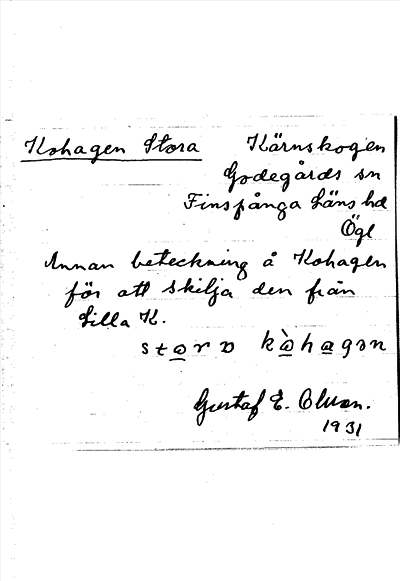 Kohagen Stora Kärnskogen
Godegårds sn
Finspånga Läns hd
Ögl
Annan beteckning å Kohagen
för att skilja den från
Lilla K.
Gustaf E. Olson.
1931